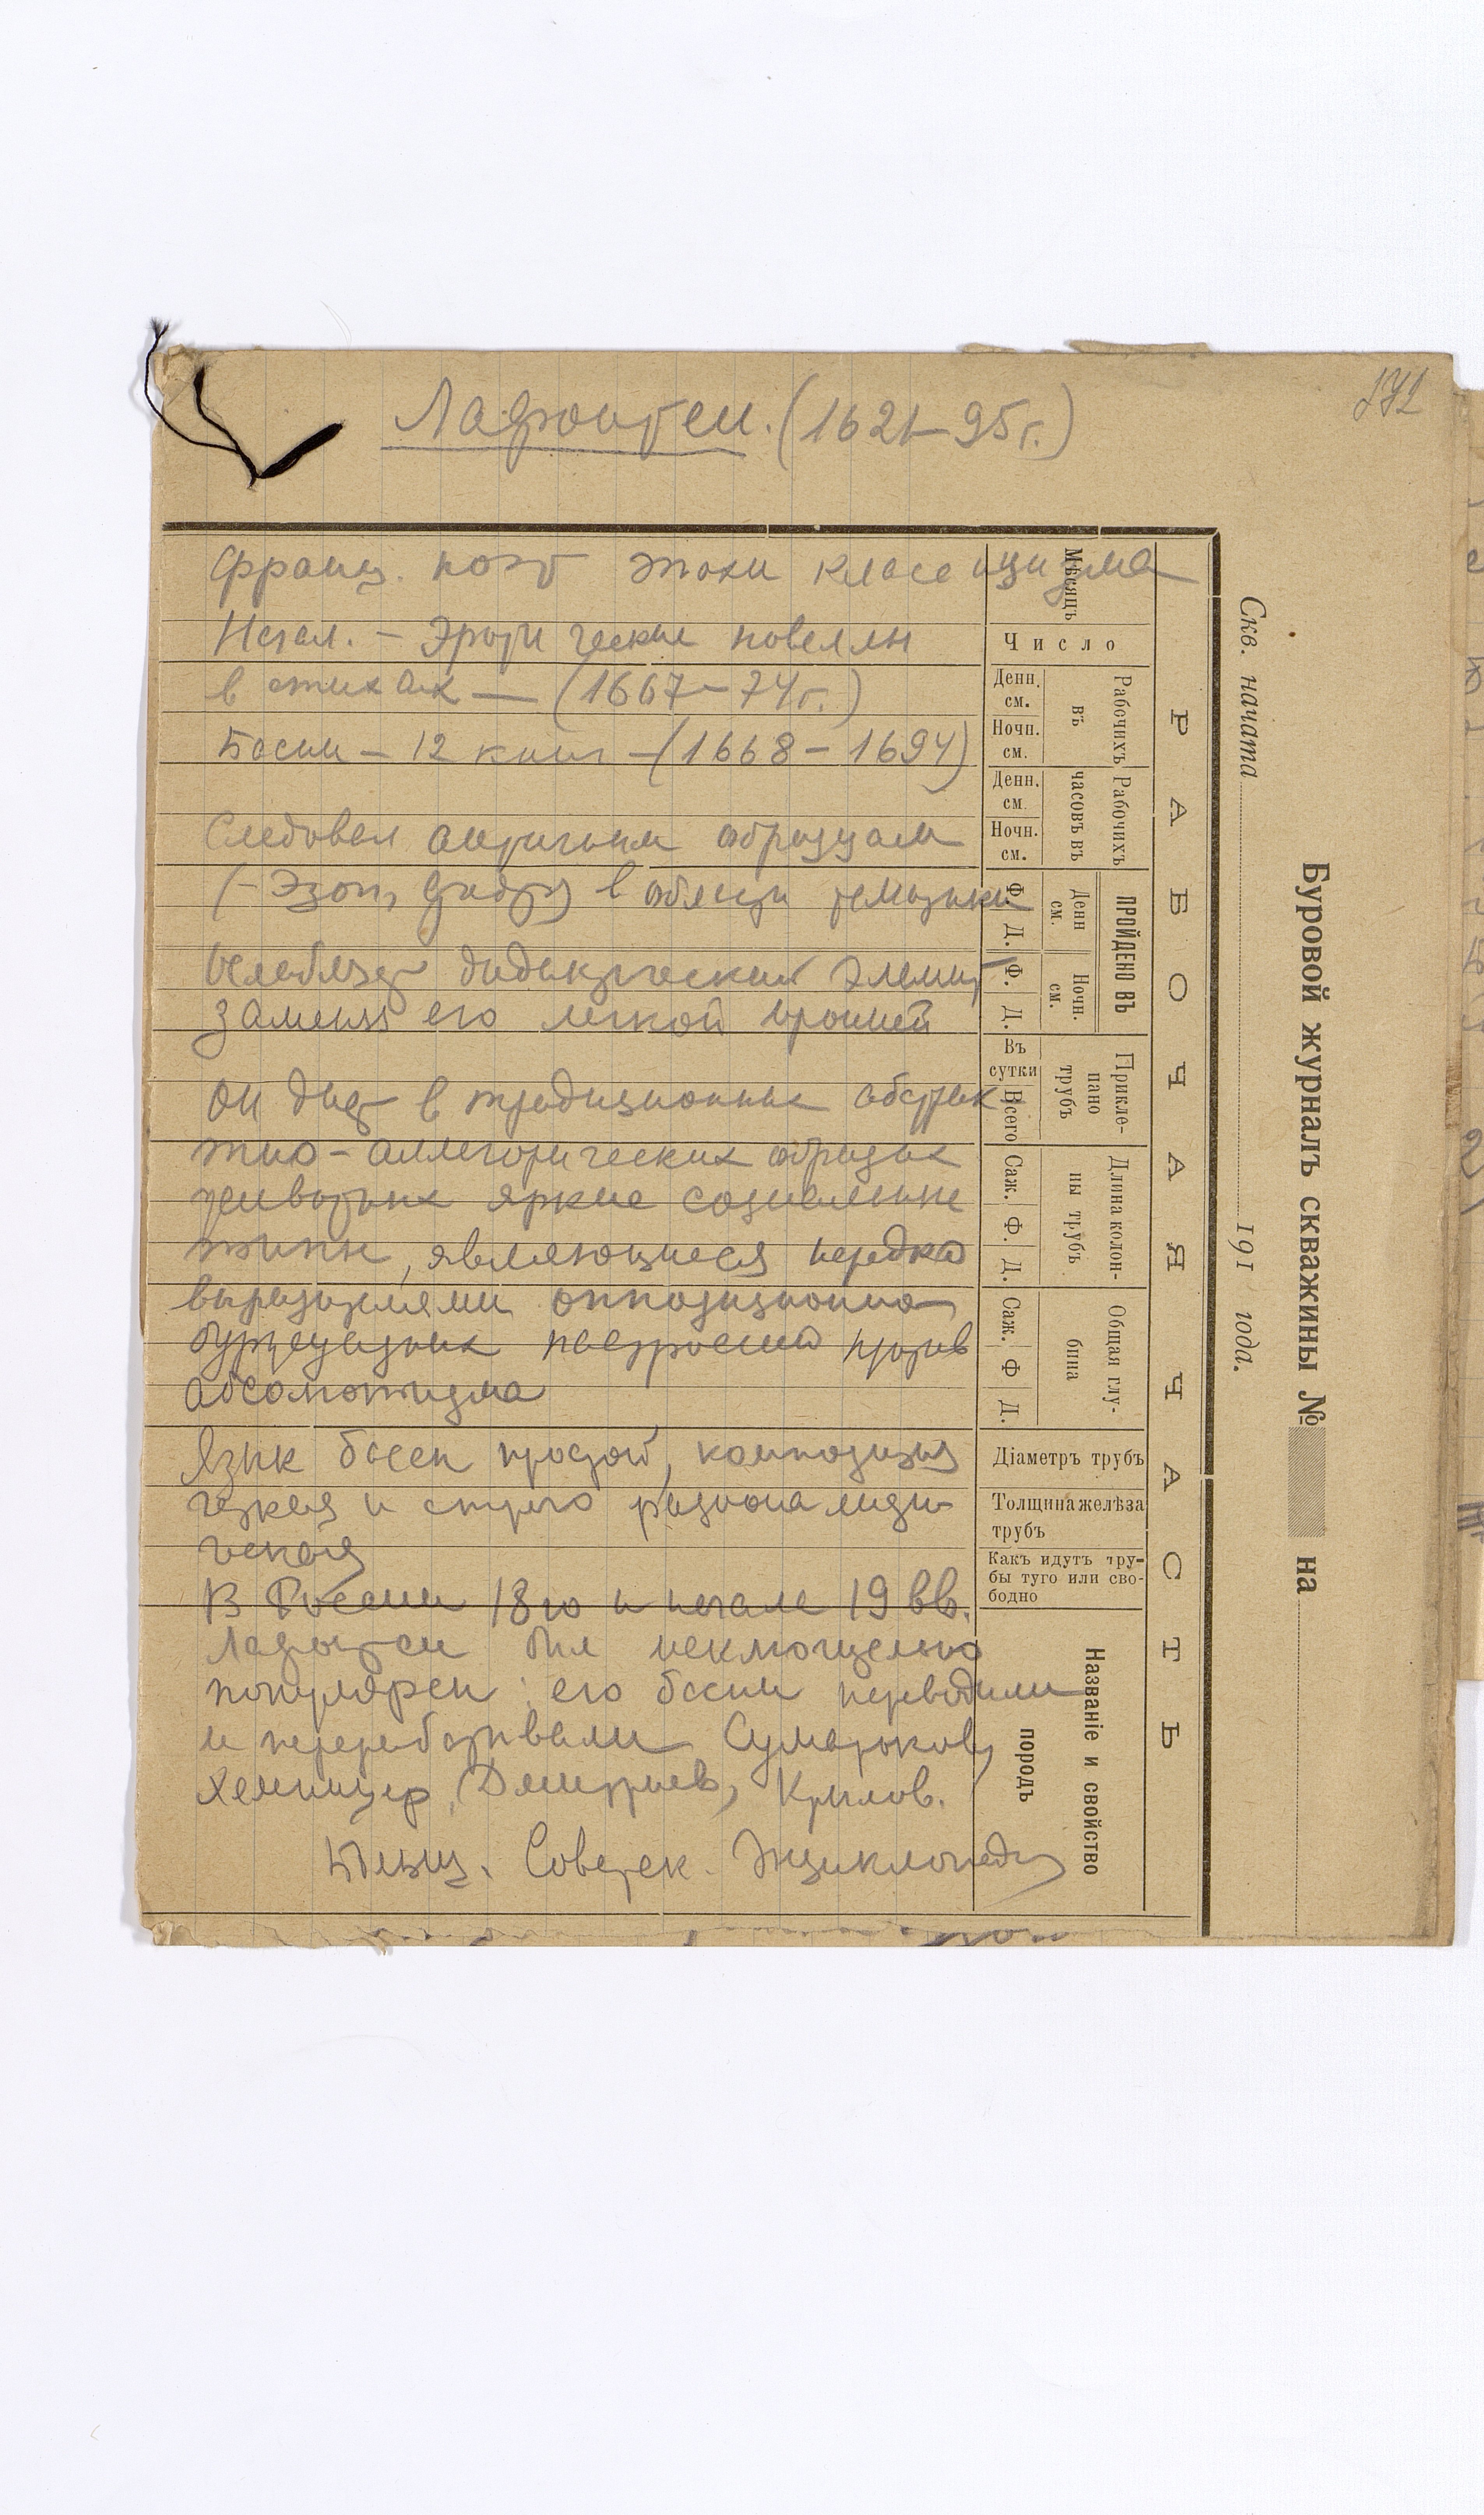 Лафонтен. (1621–95 г.)
Франц. поэт эпохи классицизма
Начал. – Эротические новеллы
в стихах — (1667–74 г.)
Басни – 12 книг – (1668 – 1694)
Следовал античным образцам
(– Эзоп, Федр) в области тематики
Ослабляет дидактический элемент
заменяя его легкой иронией
Он дает в традиционных абстрак-
тно-аллегорических образах
животных яркие социальные
типы, являющиеся нередко
выразителями оппозиционно
буржуазных настроений против
абсолютизма
Язык басен простой, композиция
четкая и строго рационалисти-
ческая
В России 18го и начале 19 вв.
Лафонтен был исключительно
популярен: его басни переводили
и перерабатывали Сумароков,
Хемницер, Дмитриев, Крылов.
Больш. Советск. Энциклопедия
Буровой журналъ скважины № на
Скв. начата 191 года.
РАБОЧАЯ ЧАСТЬ
Мѣсяцъ
Число
Рабочихъ въ
Денн. см.
Ночн. см.
Рабочихъ часовъ въ
Денн. см.
Ночн. см.
ПРОЙДЕНО ВЪ
Денн см.
Ф. Д.
Ночн. см.
Ф. Д.
Приклепано трубъ
Въ сутки
Всего
Длина колонны трубъ
Саж. Ф. Д.
Общая глубина
Саж. Ф Д.
Діаметръ трубъ
Толщина желѣза
трубъ
Какъ идутъ тру-
бы туго или сво-
бодно
Названіе и свойство
породъ